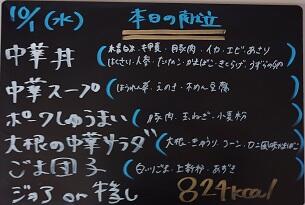 10/1(水) 本日の献立
中華丼(・豚肉・イカ・エビ・あさり
はくさい・人参・たけのこ・かまぼこ・きくらげ・うずらの卵
中華スープ(ほうれん草・えのき・わかめ・豆腐
ポークしゅうまい(豚肉・玉ねぎ・小麦粉
大根の中華サラダ(大根・きゅうり・コーン・カニ風味かまぼこ
ごま団子(白いりごま・上新粉・あずき
ジョア or 牛乳 824kcal